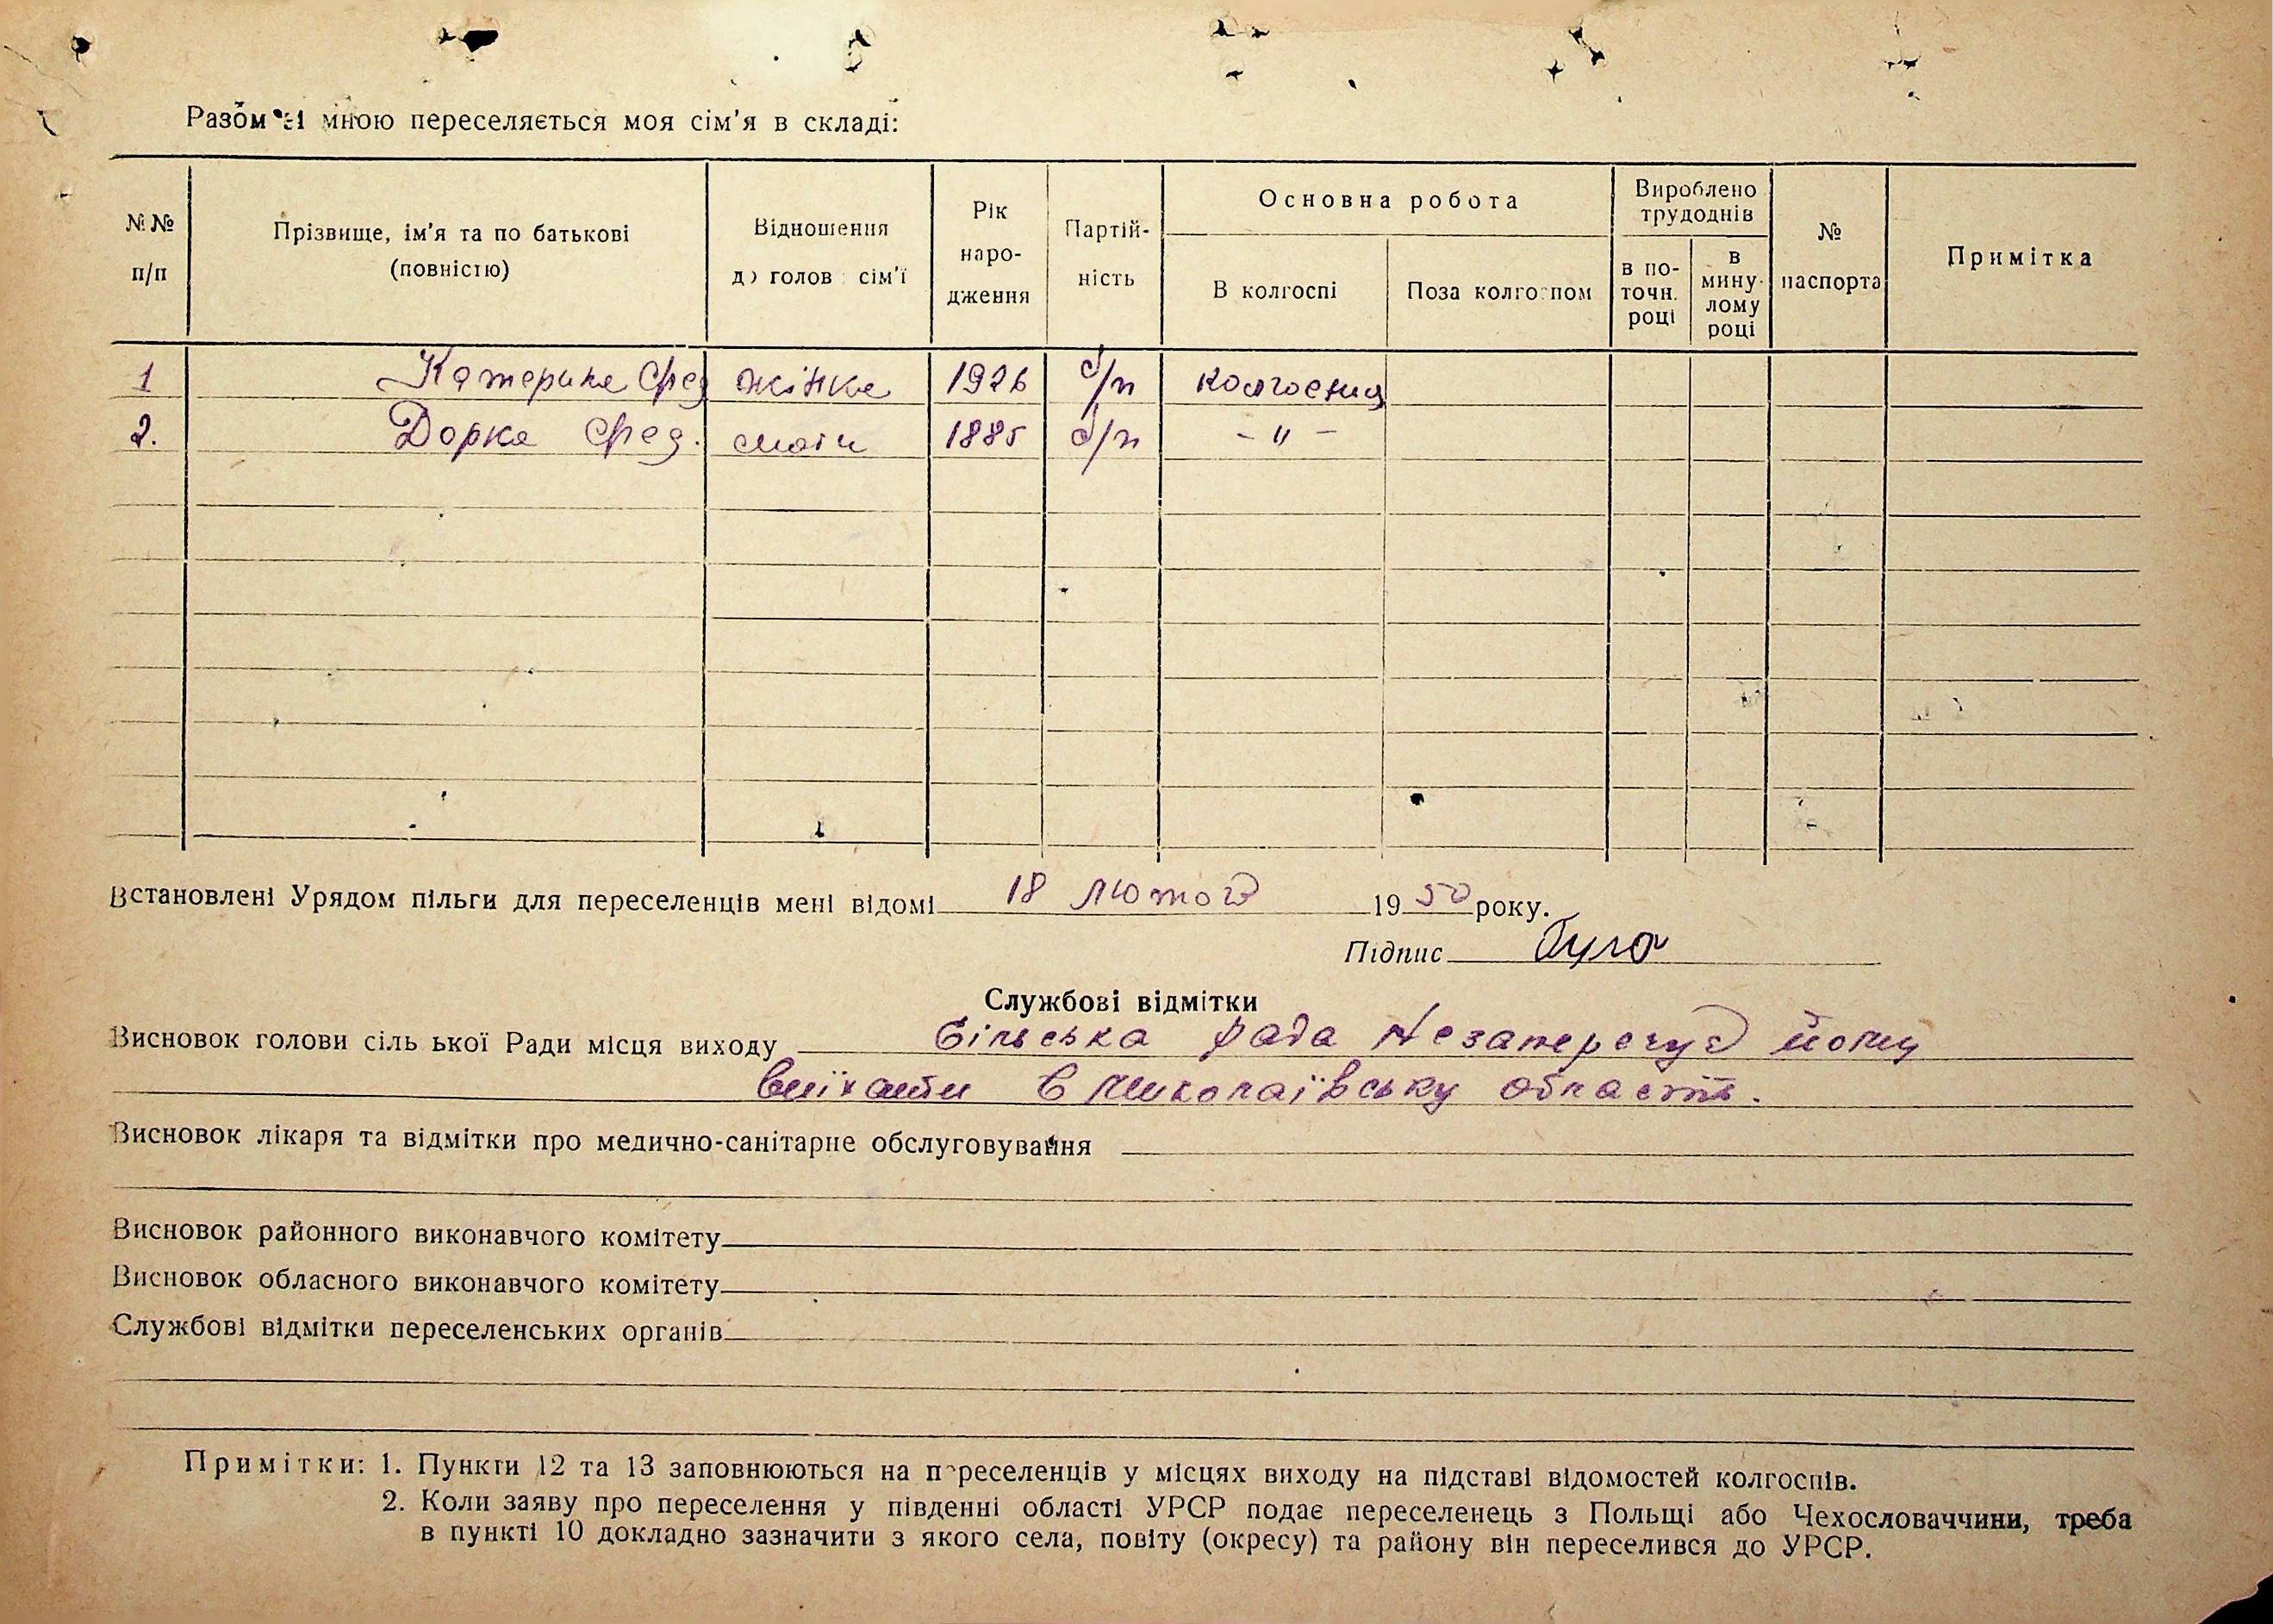 Разом зі мною переселяється моя сім'я в складі:
№№ п/п
Прізвище, ім'я та по батькові (повністю)
Відношення до голов сім'ї
Рік народження
Партійність
Основна робота
В колгоспі
Поза колгоспом
Вироблено трудоднів
в поточн. році
в минулому році
№ паспорта
Примітка
1 Катерина Фед жінка 1926 б/п колгоспниця
2. Дорка Фед. мати 1885 б/п - " -
Встановлені Урядом пільги для переселенців мені відомі 18 лютого 1950 року.
Підпис
Службові відмітки
Висновок голови сільської Ради місця виходу Сільська рада незаперечує йому
виїхати в Миколаївську область.
Висновок лікаря та відмітки про медично-санітарне обслуговування
Висновок районного виконавчого комітету
Висновок обласного виконавчого комітету
Службові відмітки переселенських органів
Примітки: 1. Пункти 12 та 13 заповнюються на переселенців у місцях виходу на підставі відомостей колгоспів.
2. Коли заяву про переселення у південні області УРСР подає переселенець з Польщі або Чехословаччини, треба
в пункті 10 докладно зазначити з якого села, повіту (окресу) та району він переселився до УРСР.